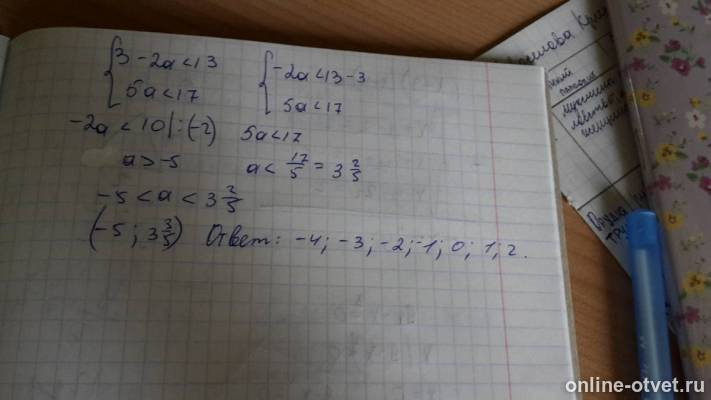 3 - 2a < 13
5a < 17
-2a < 13 - 3
5a < 17
-2a < 10 | : (-2)
5a < 17
a > -5
a < 17/5 = 3 2/5
-5 < a < 3 2/5
(-5 ; 3 3/5) Ответ: -4; -3; -2; -1; 0; 1; 2.
online-otvet.ru